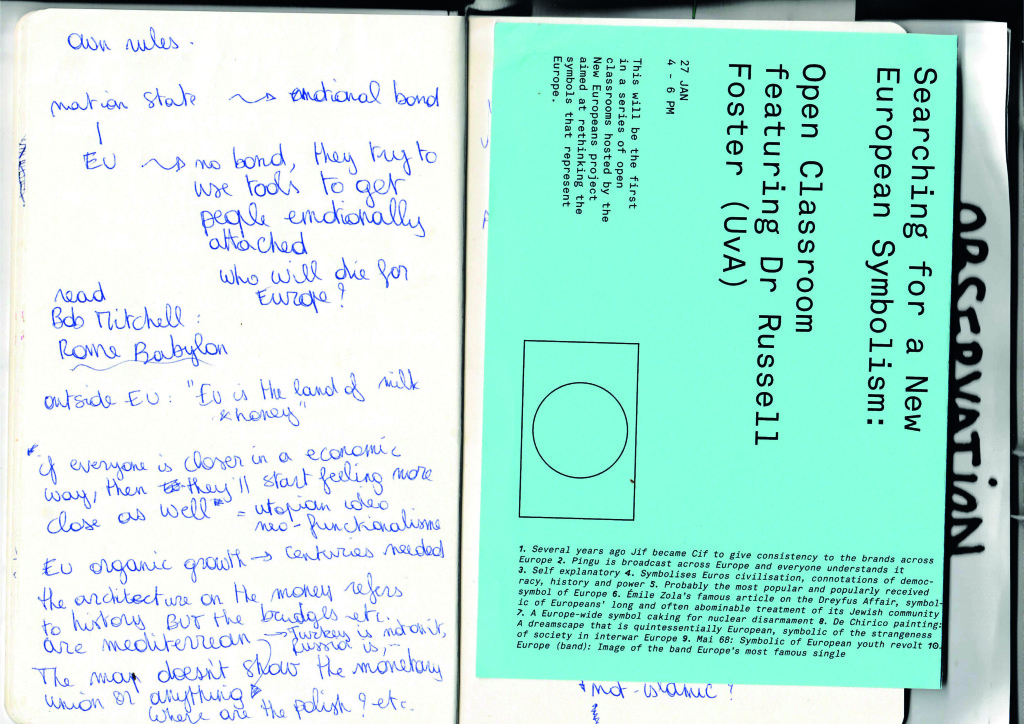 own rules.
nation state ⤳ emotional bond
EU ⤳ no bond, they try to
use tools to get
people emotionally
attached
who will die for
Europe?
read
Bob Mitchell:
Rome Babylon
outside EU: "EU is the land of milk
& honey"
"if everyone is closer in a economic
way, then they'll start feeling more
close as well" = utopian idea
neo-functionalisme
EU organic growth → centuries needed
the architecture on the money refers
to history BUT the bridges etc.
are mediterrean → Turkey is not on it,
Russia is,-
The map doesn't show the monetary
union or anything
Where are the polish? etc.
Searching for a New
European Symbolism:
Open Classroom
featuring Dr Russell
Foster (UvA)
27 JAN
4 - 6 PM
This will be the first
in a series of open
classrooms hosted by the
New Europeans project
aimed at rethinking the
symbols that represent
Europe.
1. Several years ago Jif became Cif to give consistency to the brands across
Europe 2. Pingu is broadcast across Europe and everyone understands it
3. Self explanatory 4. Symbolises Euros civilisation, connotations of democ-
racy, history and power 5. Probably the most popular and popularly received
symbol of Europe 6. Émile Zola's famous article on the Dreyfus Affair, symbol-
ic of Europeans' long and often abominable treatment of its Jewish community
7. A Europe-wide symbol caking for nuclear disarmament 8. De Chirico painting:
A dreamscape that is quintessentially European, symbolic of the strangeness
of society in interwar Europe 9. Mai 68: Symbolic of European youth revolt 10.
Europe (band): Image of the band Europe's most famous single
not-islamic?
OBSERVATION